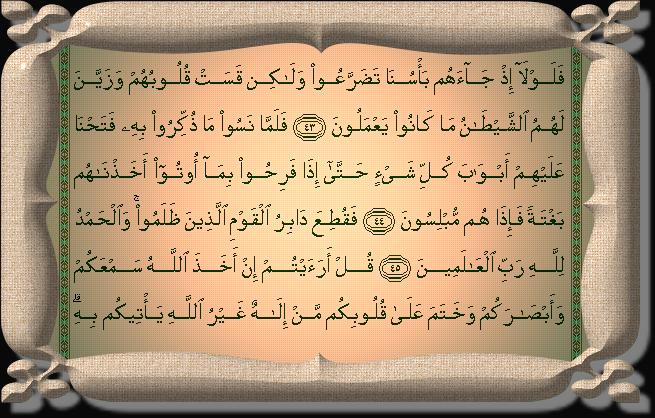 فَلَوْلَآ إِذْ جَآءَهُم بَأْسُنَا تَضَرَّعُوا۟ وَلَـٰكِن قَسَتْ قُلُوبُهُمْ وَزَيَّنَ
لَهُمُ ٱلشَّيْطَـٰنُ مَا كَانُوا۟ يَعْمَلُونَ ٤٣ فَلَمَّا نَسُوا۟ مَا ذُكِّرُوا۟ بِهِۦ فَتَحْنَا
عَلَيْهِمْ أَبْوَٰبَ كُلِّ شَىْءٍ حَتَّىٰٓ إِذَا فَرِحُوا۟ بِمَآ أُوتُوٓا۟ أَخَذْنَـٰهُم
بَغْتَةً فَإِذَا هُم مُّبْلِسُونَ ٤٤ فَقُطِعَ دَابِرُ ٱلْقَوْمِ ٱلَّذِينَ ظَلَمُوا۟ ۚ وَٱلْحَمْدُ
لِلَّهِ رَبِّ ٱلْعَـٰلَمِينَ ٤٥ قُلْ أَرَءَيْتُمْ إِنْ أَخَذَ ٱللَّهُ سَمْعَكُمْ
وَأَبْصَـٰرَكُمْ وَخَتَمَ عَلَىٰ قُلُوبِكُم مَّنْ إِلَـٰهٌ غَيْرُ ٱللَّهِ يَأْتِيكُم بِهِ ۗ